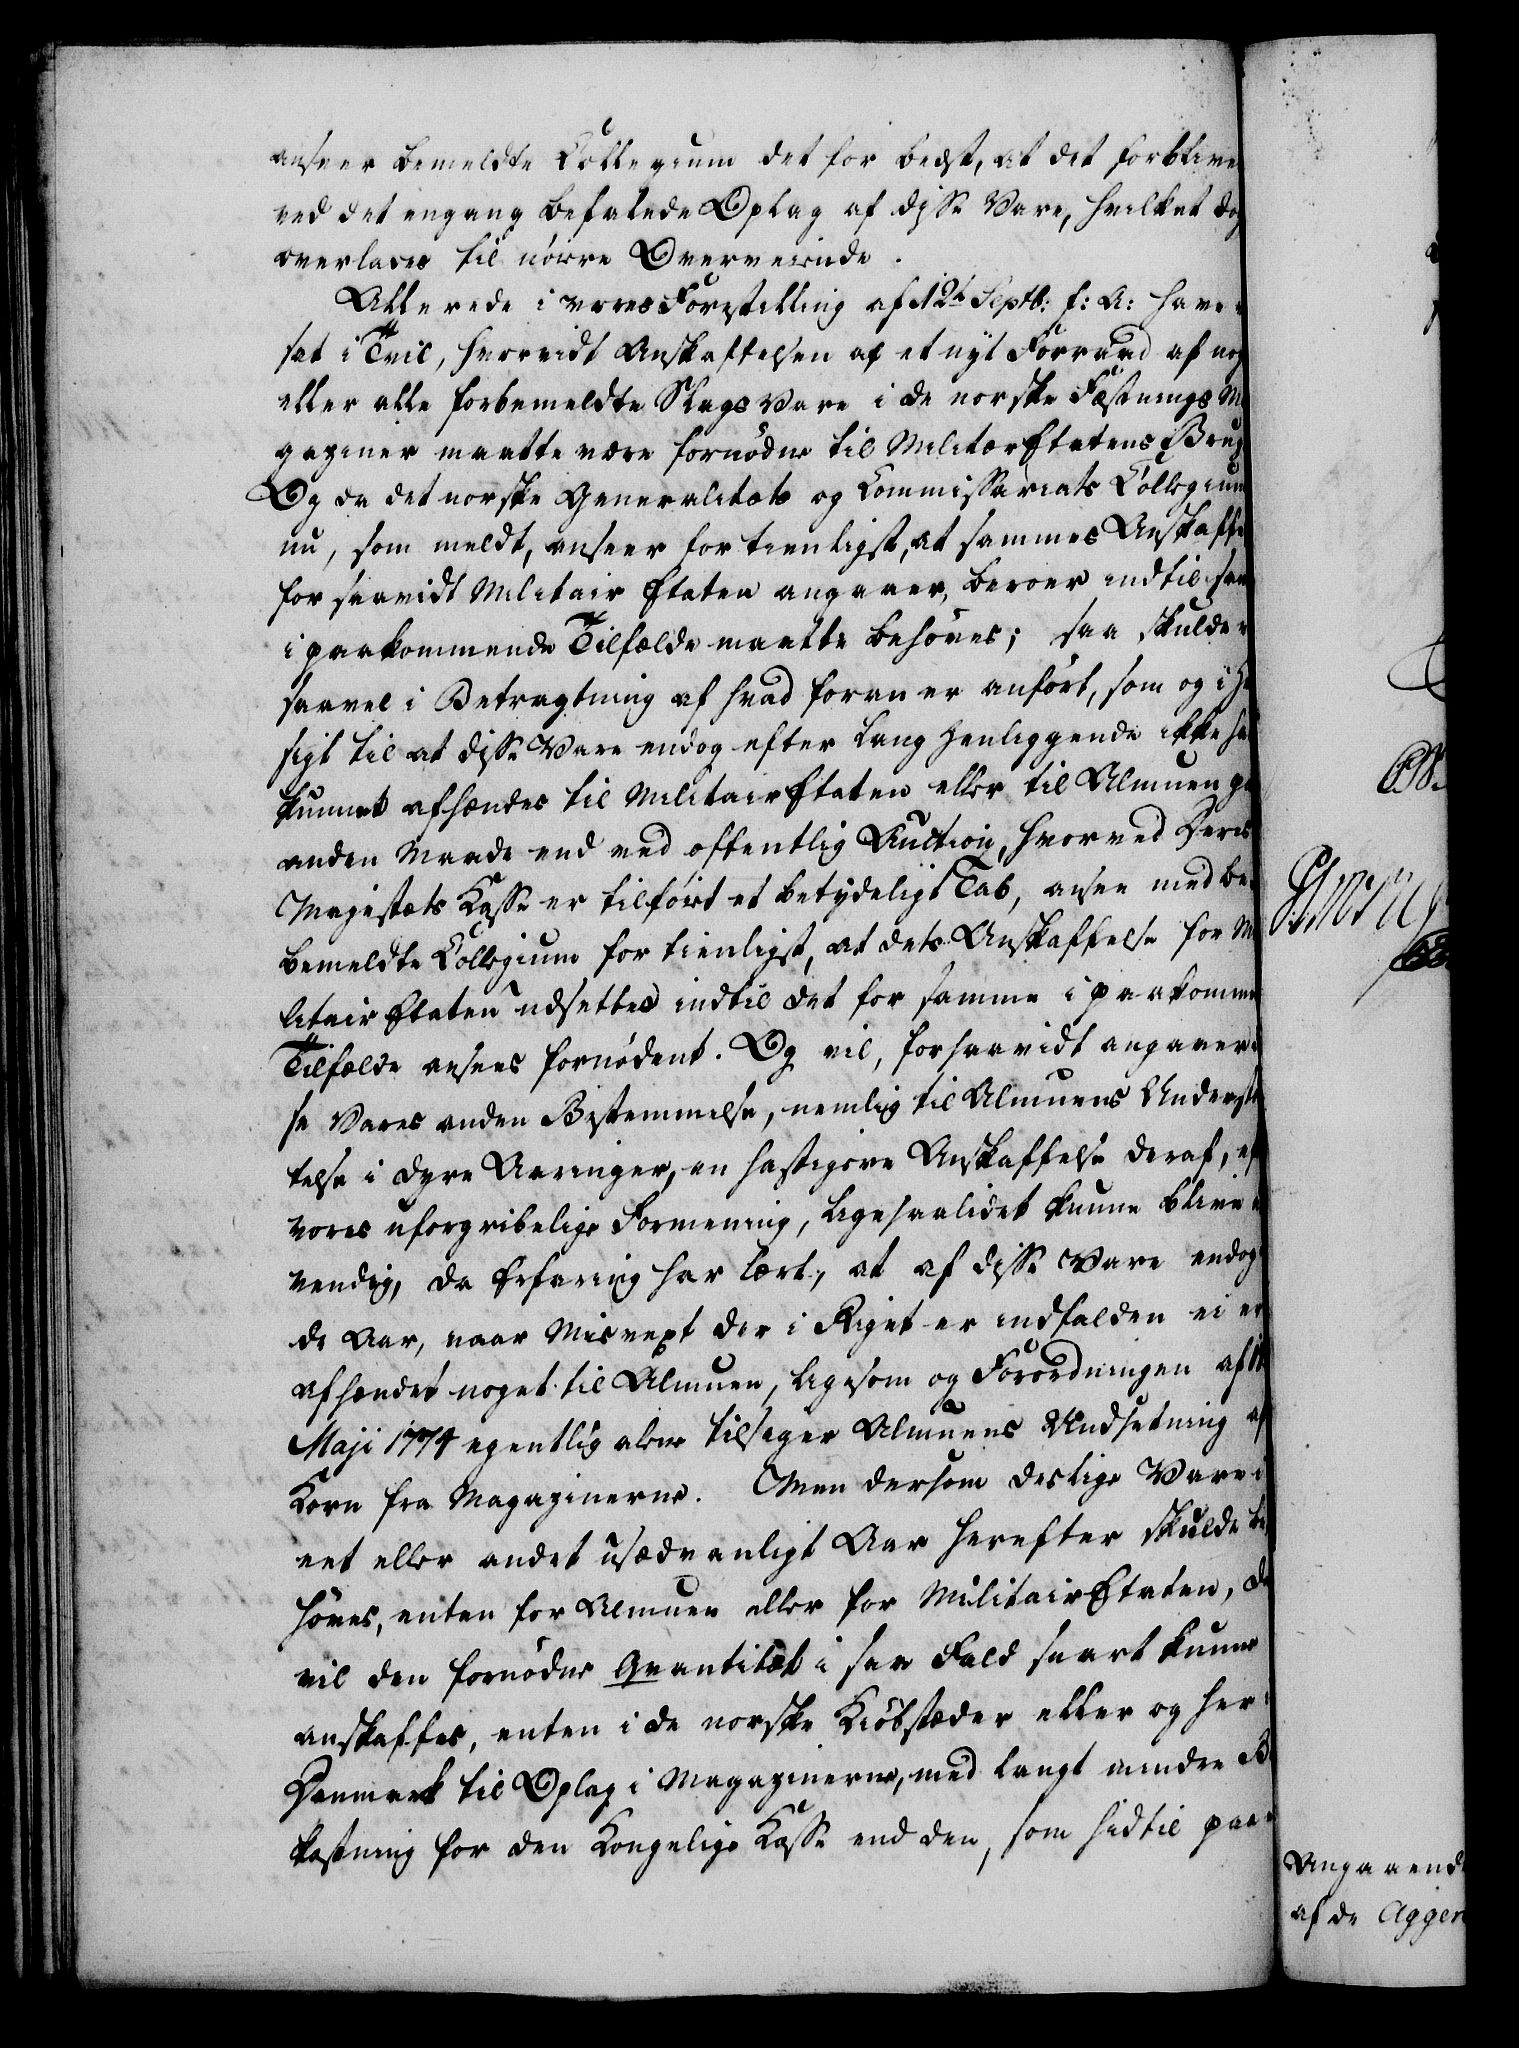 anseer bemeldte Collegium det for bedst, at det forblive
ved det engang befalede Oplag af disse Vare, hvilket dog
overlades til nørre Overveiende.
Allerede i vores Forestilling af 12t Septb: f: A: have
sat i Tvil, hvorvidt Anskaffelsen af et nyt Forraad af nog
eller alle forbemeldte Slags Vare i de norske Fæstnings Ma
gaziner maatte være fornødne til Militær Etatens Brug
Og da det norske Generalitæts og Commissariats Collegium
nu, som meldt, anseer for tienligst, at sammes Anskaffe
for saavidt Militair Etaten angaaer, beroer indtil sam
i paakommende Tilfælde maatte behøves; saa skulde
saavel i Betragtning af hvad foran er anført, som og i He
sigt til at disse Vare endog efter lang Henliggende ikke ha
kunnet afhændes til Militair Etaten eller til Almuen pa
anden Maade end ved offentlig Auction, hvorved Deres
Majestæts Kasse er tilført et betydeligt Tab, ansee med be
bemeldte Collegium for tienligst, at dets Anskaffelse for Mi
litair Etaten udsættes indtil det for samme i paakommen
Tilfælde ansees fornødent. Og vil, forsaavidt angaaer
se Vares anden Bestemmelse, nemlig til Almuens Underst
telse i dyre Aaringer, en hastigere Anskaffelse deraf, ef
vores uforgribelige Formening, ligesaalidet kunne blive
vendig, da Erfaring har lært, at af disse Vare endog
de Aar, naar Misvext der i Riget er indfalden ei er
afhændet noget til Almuen, ligesom og Forordningen af
Maji 1774 egentlig alene tilsiger Almuens Undsetning af
Korn fra Magazinerne. Men dersom deslige Vare i
eet eller andet usædvanligt Aar herefter skulde be
høves, enten for Almuen eller for Militair Etaten, da
vil den fornødne Qvantitæt i saa Fald snart kunne
anskaffes, enten i de norske Kiøbstæder eller og her i
Danmark til Oplag i Magazinerne, med langt mindre B
kostning for den Kongelige Kasse end den, som hidtil paa
Angaaende
af de Agger